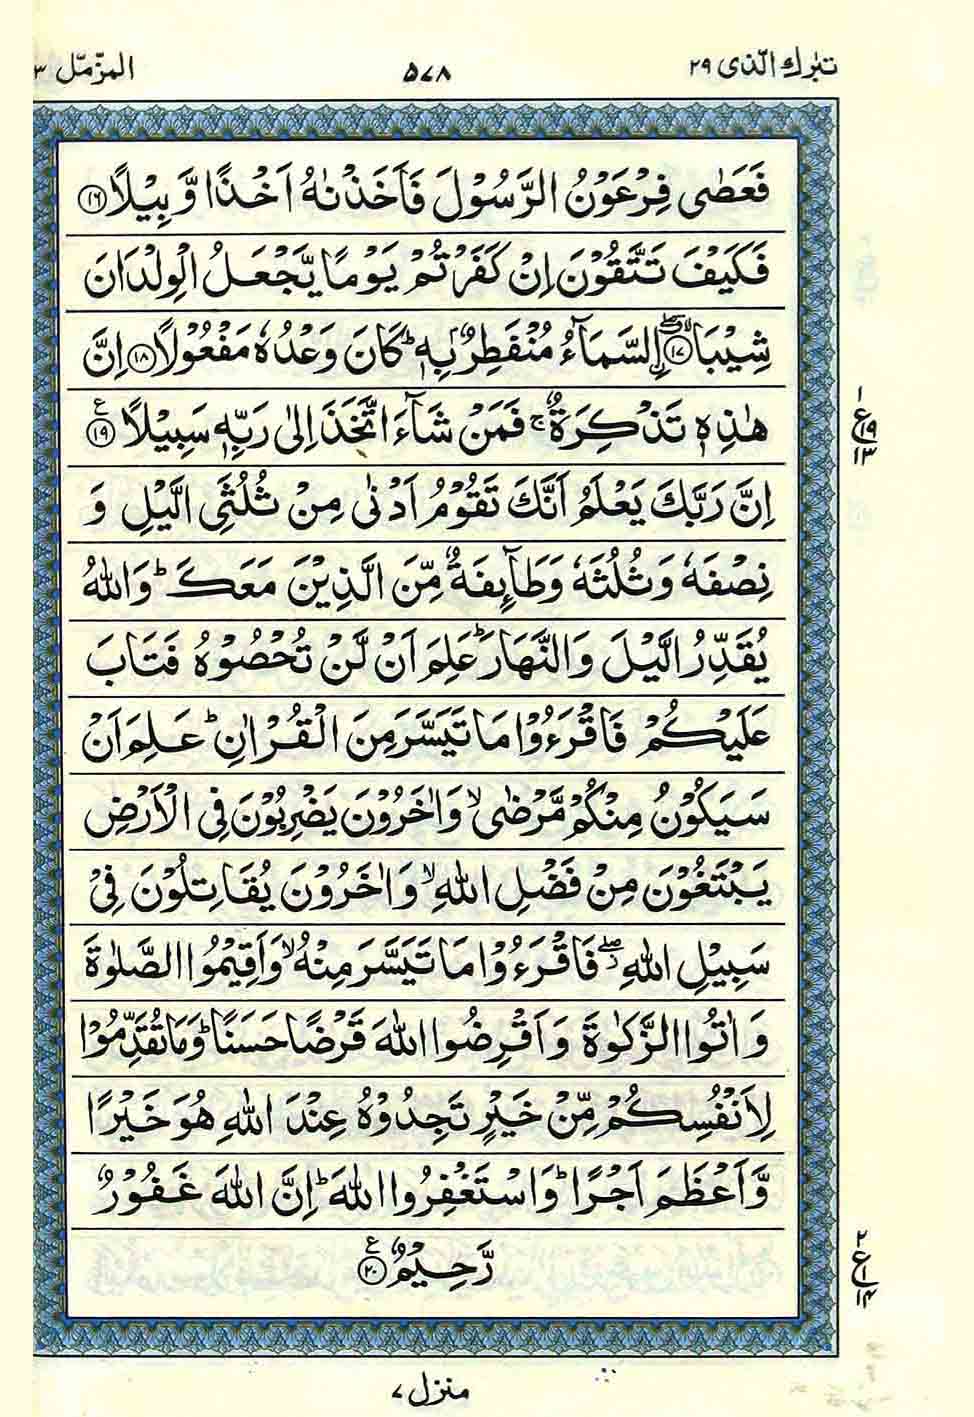 تبٰرك الّذی ۲۹
۵۷۸
المزّمّل ۳
فَعَصٰى فِرْعَوْنُ الرَّسُوْلَ فَاَخَذْنٰهُ اَخْذًا وَّبِیْلًا ۱۶
فَكَیْفَ تَتَّقُوْنَ اِنْ كَفَرْتُمْ یَوْمًا یَّجْعَلُ الْوِلْدَانَ
شِیْبَا ۱۷ اِ۟لسَّمَآءُ مُنْفَطِرٌۢ بِهٖ ؕ كَانَ وَعْدُهٗ مَفْعُوْلًا ۱۸ اِنَّ
هٰذِهٖ تَذْكِرَةٌ ۚ فَمَنْ شَآءَ اتَّخَذَ اِلٰى رَبِّهٖ سَبِیْلًا ۱۹ ع
اِنَّ رَبَّكَ یَعْلَمُ اَنَّكَ تَقُوْمُ اَدْنٰى مِنْ ثُلُثَیِ الَّیْلِ وَ
نِصْفَهٗ وَثُلُثَهٗ وَطَآىِٕفَةٌ مِّنَ الَّذِیْنَ مَعَكَ ؕ وَاللّٰهُ
یُقَدِّرُ الَّیْلَ وَالنَّهَارَ ؕ عَلِمَ اَنْ لَّنْ تُحْصُوْهُ فَتَابَ
عَلَیْكُمْ فَاقْرَءُوْا مَا تَیَسَّرَ مِنَ الْقُرْاٰنِ ؕ عَلِمَ اَنْ
سَیَكُوْنُ مِنْكُمْ مَّرْضٰى ۙ وَاٰخَرُوْنَ یَضْرِبُوْنَ فِی الْاَرْضِ
یَبْتَغُوْنَ مِنْ فَضْلِ اللّٰهِ ۙ وَاٰخَرُوْنَ یُقَاتِلُوْنَ فِیْ
سَبِیْلِ اللّٰهِ ۖؗ فَاقْرَءُوْا مَا تَیَسَّرَ مِنْهُ ۙ وَاَقِیْمُوا الصَّلٰوةَ
وَاٰتُوا الزَّكٰوةَ وَاَقْرِضُوا اللّٰهَ قَرْضًا حَسَنًا ؕ وَمَا تُقَدِّمُوْا
لِاَنْفُسِكُمْ مِّنْ خَیْرٍ تَجِدُوْهُ عِنْدَ اللّٰهِ هُوَ خَیْرًا
وَّاَعْظَمَ اَجْرًا ؕ وَاسْتَغْفِرُوا اللّٰهَ ؕ اِنَّ اللّٰهَ غَفُوْرٌ
رَّحِیْمٌ ۲۰ ع
۱
ع ۱۹
۱۳
۲
ع ۱
۱۴
منزل ۷